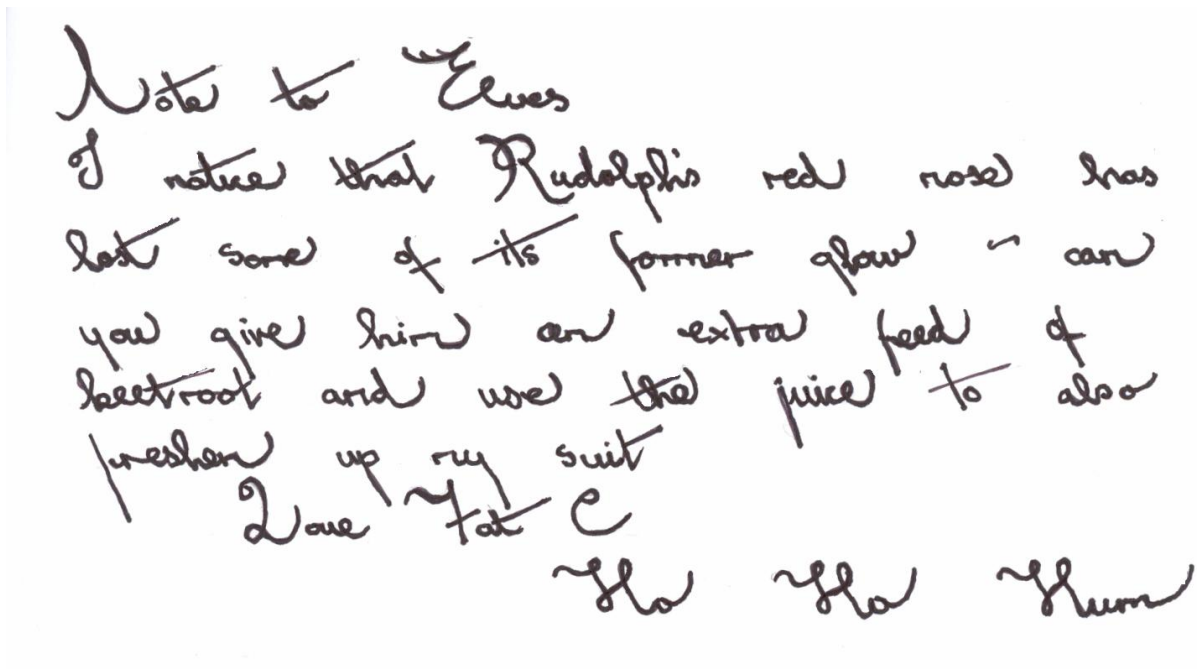 Note to Elves
I notice that Rudolph's red nose has
lost some of its former glow ~ can
you give him an extra feed of
beetroot and use the juice to also
freshen up my suit
Love Fat C
Ho Ho Hum